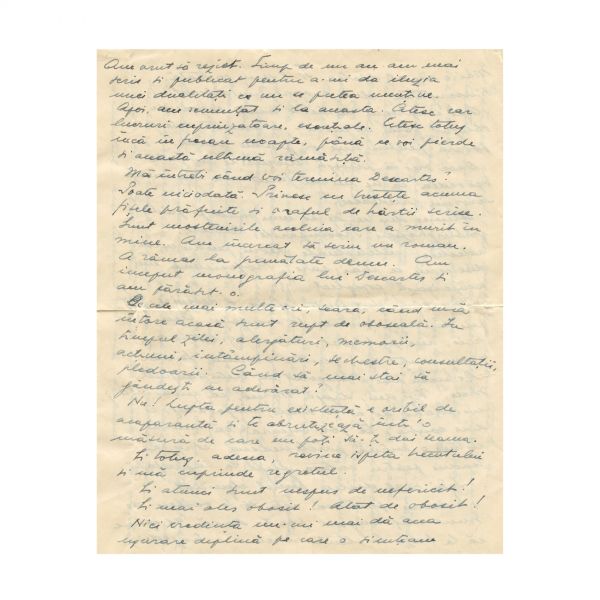 Am avut să rejet. Timp de un an am mai
scris și publicat pentru a-mi da iluzia
unei dualități ce nu se putea menține.
Apoi, am renunțat și la aceasta. Citesc rar
lucruri surprinzătoare, esențiale. Citesc totuș
încă în fiecare noapte, până ce voi pierde
și această ultimă rămășiță.
Mă întrebi când voi termina Descartes?
Poate niciodată. Privesc cu tristețe acum
fișele prăfuite și vraful de hârtii scrise.
Sunt moștenirile aceluia care a murit în
mine. Am încercat să scriu un roman.
A rămas la jumătate demn. Am
început monografia lui Descartes și
am părăsit-o.
De cele mai multe ori, seara, când mă
întorc acasă sunt rupt de oboseală. În
timpul zilei, alergături, memorii,
acțiuni, întâmpinări, sechestre, consultații,
pledoarii. Când să mai stai să
gândești cu adevărat?
Nu! Lupta pentru existență e oribil de
acaparantă și te abrutizează într'o
măsură de care nu poți să-ți dai seama.
Și totuș, adesea, revine ispita trecutului
și mă cuprinde regretul.
Și atunci sunt nespus de nefericit!
Și mai ales obosit! Atât de obosit!
Nici credința nu-mi mai dă acea
deplină pe care o